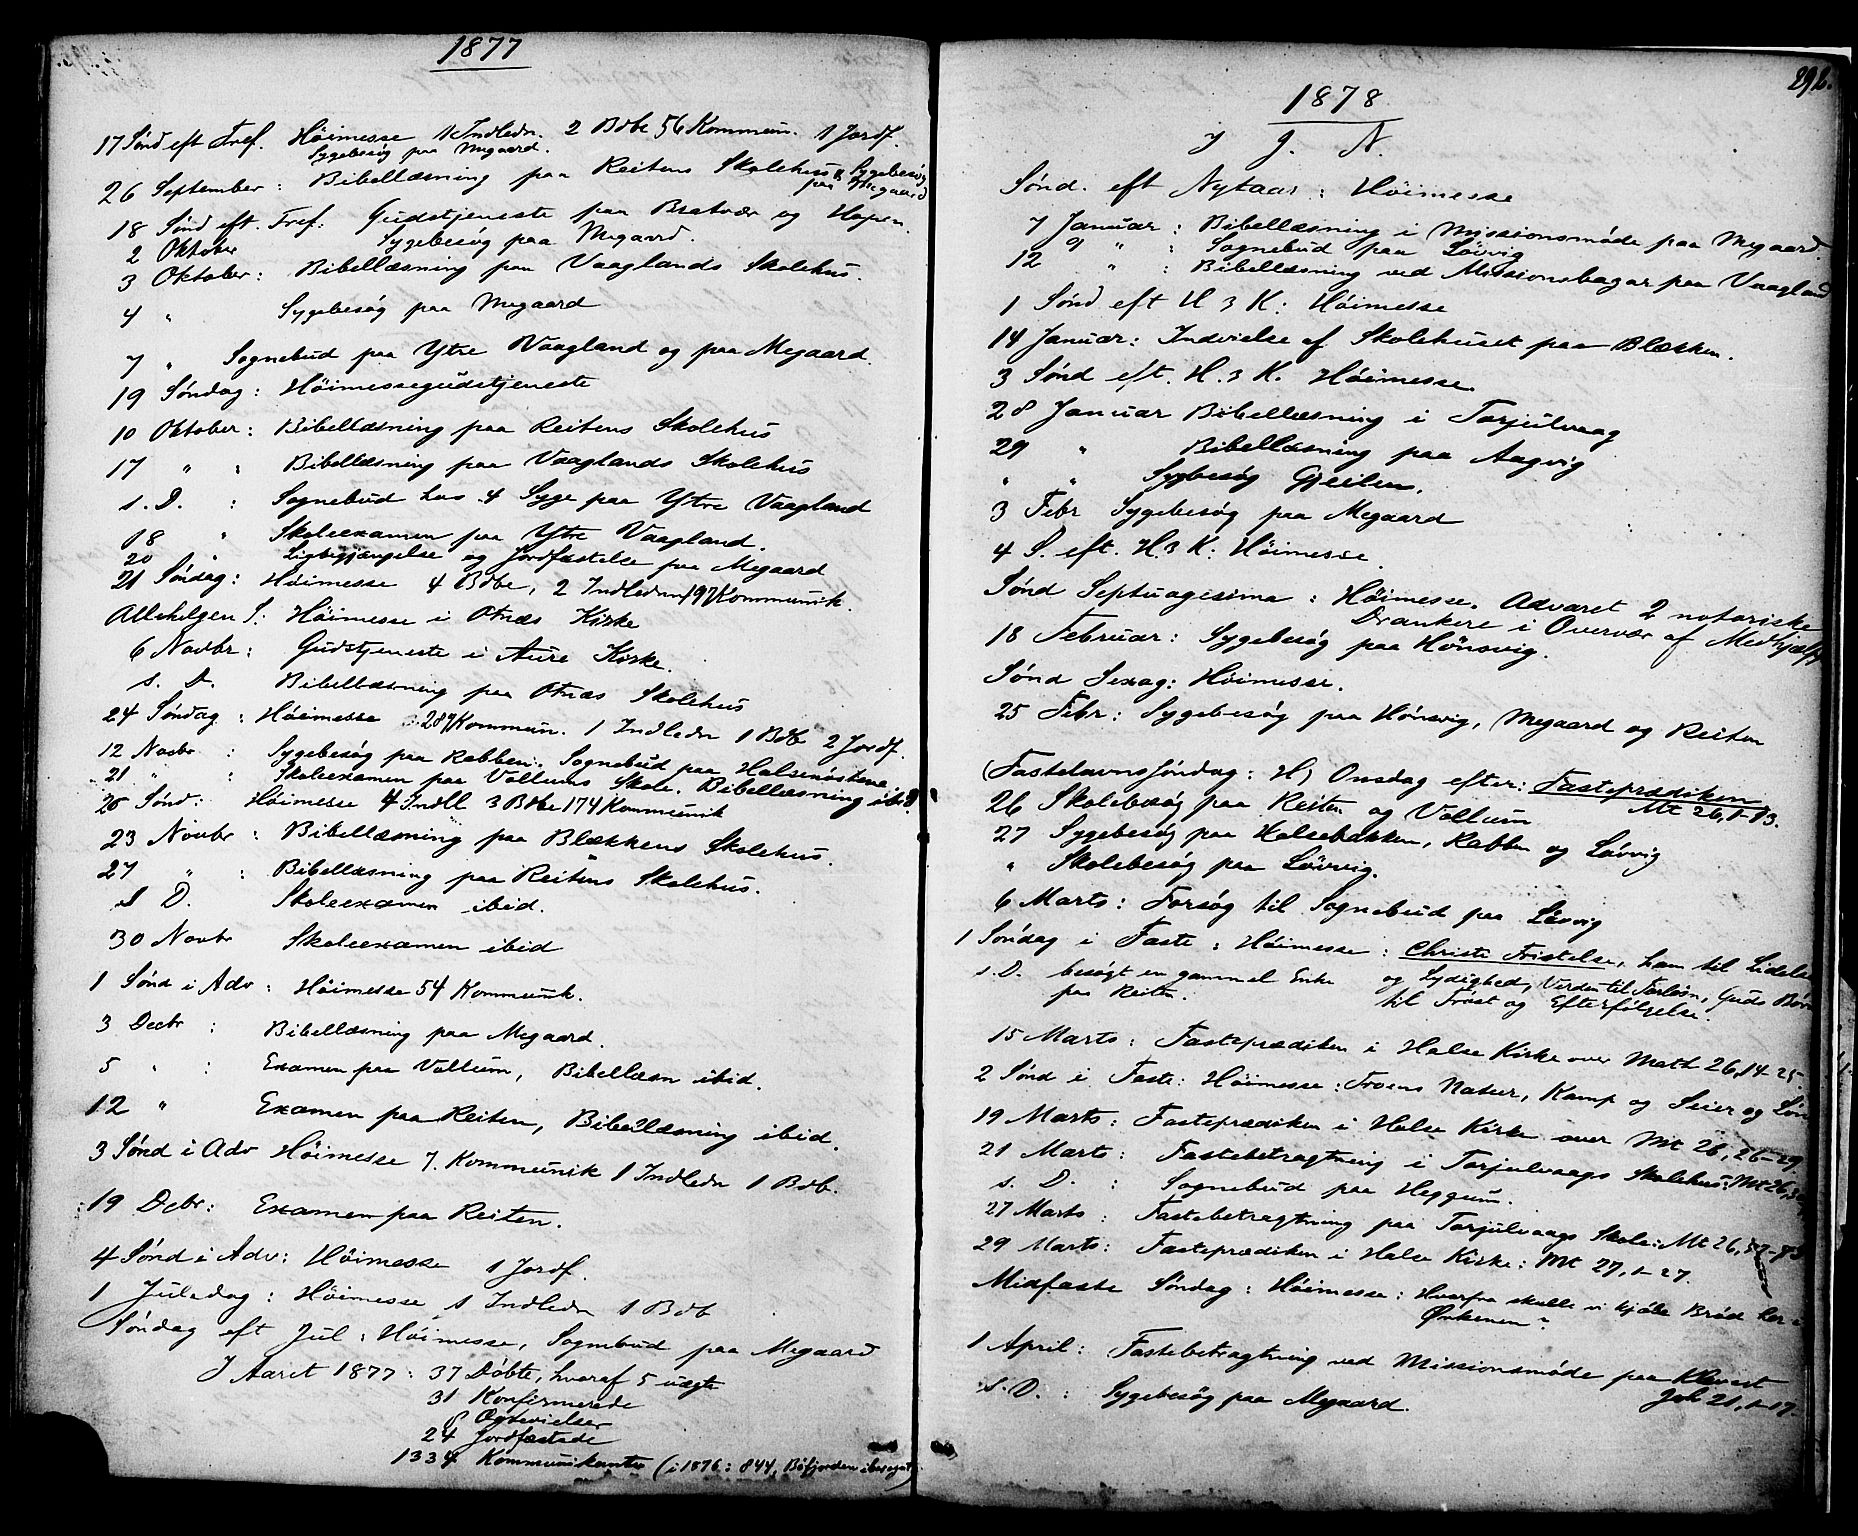 1877
17 Sønd eft Tref. Høimesse 1 Indledn. 2 Bdbe 56 Kommun. 1 Jordf.
Sygebesøg paa Megaard.
26 September: Bibellæsning paa Reitens Skolehus & Sygebesøg
paa Megaard
18 Sønd eft. Tref: Gudstjeneste paa Bratvær og Hopen.
2 Oktober Sygebesøg paa Megaard.
3 Oktober: Bibellæsning paa Vaaglands Skolehus.
4 " Sygebesøg paa Megaard
7 " Sognebud paa Ytre Vaagland og paa Megaard.
19 Søndag: Høimessegudstjeneste
10 Oktober: Bibellæsning paa Reitens Skolehus
17 " : Bibellæsning paa Vaaglands Skolehus
s. D. : Sognebud hos 4 Syge paa Ytre Vaagland
18 " Skoleexamen paa Ytre Vaagland.
20 " Ligbegjængelse og Jordfæstelse paa Megaard
21 Søndag: Høimesse 4 Bdbe, 2 Indledn 197 Kommunik.
Allehelgen S: Høimesse i Otnæs Kirke
6 Novbr: Gudstjeneste i Aure Kirke.
s. D. Bibellæsning paa Otnæs Skolehus
24 Søndag: Høimesse 287 Kommun. 1 Indledn 1 Bdb 2 Jordf.
12 Novbr : Sygebesøg paa Rabben. Sognebud paa Halsenøstene
21 " : Skoleexamen paa Vollums Skole. Bibellæsning ibid.
26 Sønd: Høimesse 4 Indll 3 Bdbe 174 Kommunik
23 Novbr : Bibellæsning paa Blækkens Skolehus.
27 " : Bibellæsning paa Reitens Skolehus.
s D. Skoleexamen ibid.
30 Novbr Skoleexamen ibid
1 Sønd i Adv : Høimesse 54 Kommunik.
3 Decbr : Bibellæsning paa Megaard.
5 " : Examen paa Vollum, Bibellæsn ibid.
12 " Examen paa Reiten, Bibellæsning ibid.
3 Sønd i Adv Høimesse 7 Kommunik 1 Indledn 1 Bdb.
19 Dcbr: Examen paa Reiten.
4 Sønd i Adv: Høimesse 1 Jordf.
1 Juledag: Høimesse 1 Indledn 1 Bdb
Søndag eft Jul: Høimesse, Sognbud paa Megaard
I Aaret 1877: 37 Døbte, hvoraf 5 uægte
31 Konfirmerede
8 Ægtevielser
24 Jordfæstede
1334 Kommunikanter (i 1876: 844, Bøfjorden iberegnet)
292.
1878
I J. N.
Sønd. eft Nytaar: Høimesse
7 Januar: Bibellæsning i Missionsmøde paa Megaard.
9 " : Sognebud paa Løvvig
12 " : Bibellæsning ved Missionsbazar paa Vaagland
1 Sønd eft H 3 K: Høimesse
14 Januar: Indvielse af Skolehuset paa Blækken.
3 Sønd eft. H. 3 K. Høimesse.
28 Januar Bibellæsning i Torjulvaag
29 " Bibellæsning paa Aagvig
" " Sygbesøg Gjeilen.
3 Febr Sygebesøg paa Megaard
4 S. eft. H. 3 K: Høimesse.
Sønd Septuagesima: Høimesse. Advaret 2 notoriske
Drankere i Overvær af Medhjælp
18 Februar: Sygebesøg paa Hønsvig.
Sønd Sexag: Høimesse.
25 Febr: Sygebesøg paa Hønsvig, Megaard og Reiten
(Fastelavnssøndag: H) Onsdag efter: Fasteprædiken
Mt 26, 1-13.
26 Skolebesøg paa Reiten og Vollum
27 Sygebesøg paa Halsebakken, Rabben og Løvvig
" Skolebesøg paa Løvvig.
6 Marts: Forsøg til Sognebud paa Løvvig
1 Søndag i Faste: Høimesse: Christi Fristelse, ham til Lidelse
og Lydighed, Verden til Forløsn, Guds Børn
til Trøst og Efterfølgelse.
s. D. besøgt en gammel Enke
paa Reiten.
15 Marts: Fasteprædiken i Halse Kirke over Math 26, 14-25.
2 Sønd i Faste: Høimesse: Troens Natur, Kamp og Seier og Løn
19 Marts: Fasteprædiken i Halse Kirke over Mt 26, 26-29.
21 Marts: Fastebetragtning i Torjulvaags Skolehus: Mt 26,
s. D. : Sognebud paa Heggum.
27 Marts: Fastebetragtning paa Torjulvaags Skole: Mt 26,
29 Marts: Fasteprædiken i Halse Kirke: Mt 27, 1-27.
Midfaste Søndag: Høimesse: Hvorfra skulle vi kjøbe Brød her i
Ørkenen?
1 April: Fastebetragtning ved Missionsmøde paa
Joh 21, 1-17.
s. D. : Sygebesøg paa Megaard.